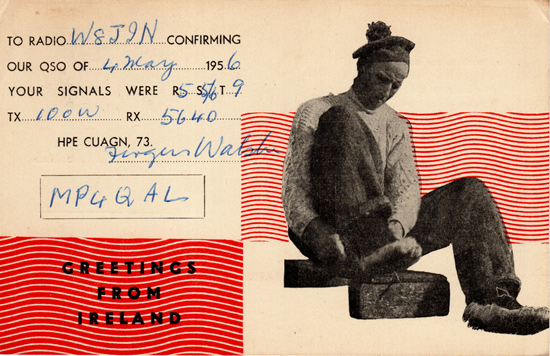 TO RADIO W8JIN CONFIRMING
OUR QSO OF 4 May 1956
YOUR SIGNALS WERE R 5 S 5/6 T 9
TX 100W RX 5640
HPE CUAGN, 73.
Fergus Walsh
MP4QAL
GREETINGS
FROM
IRELAND